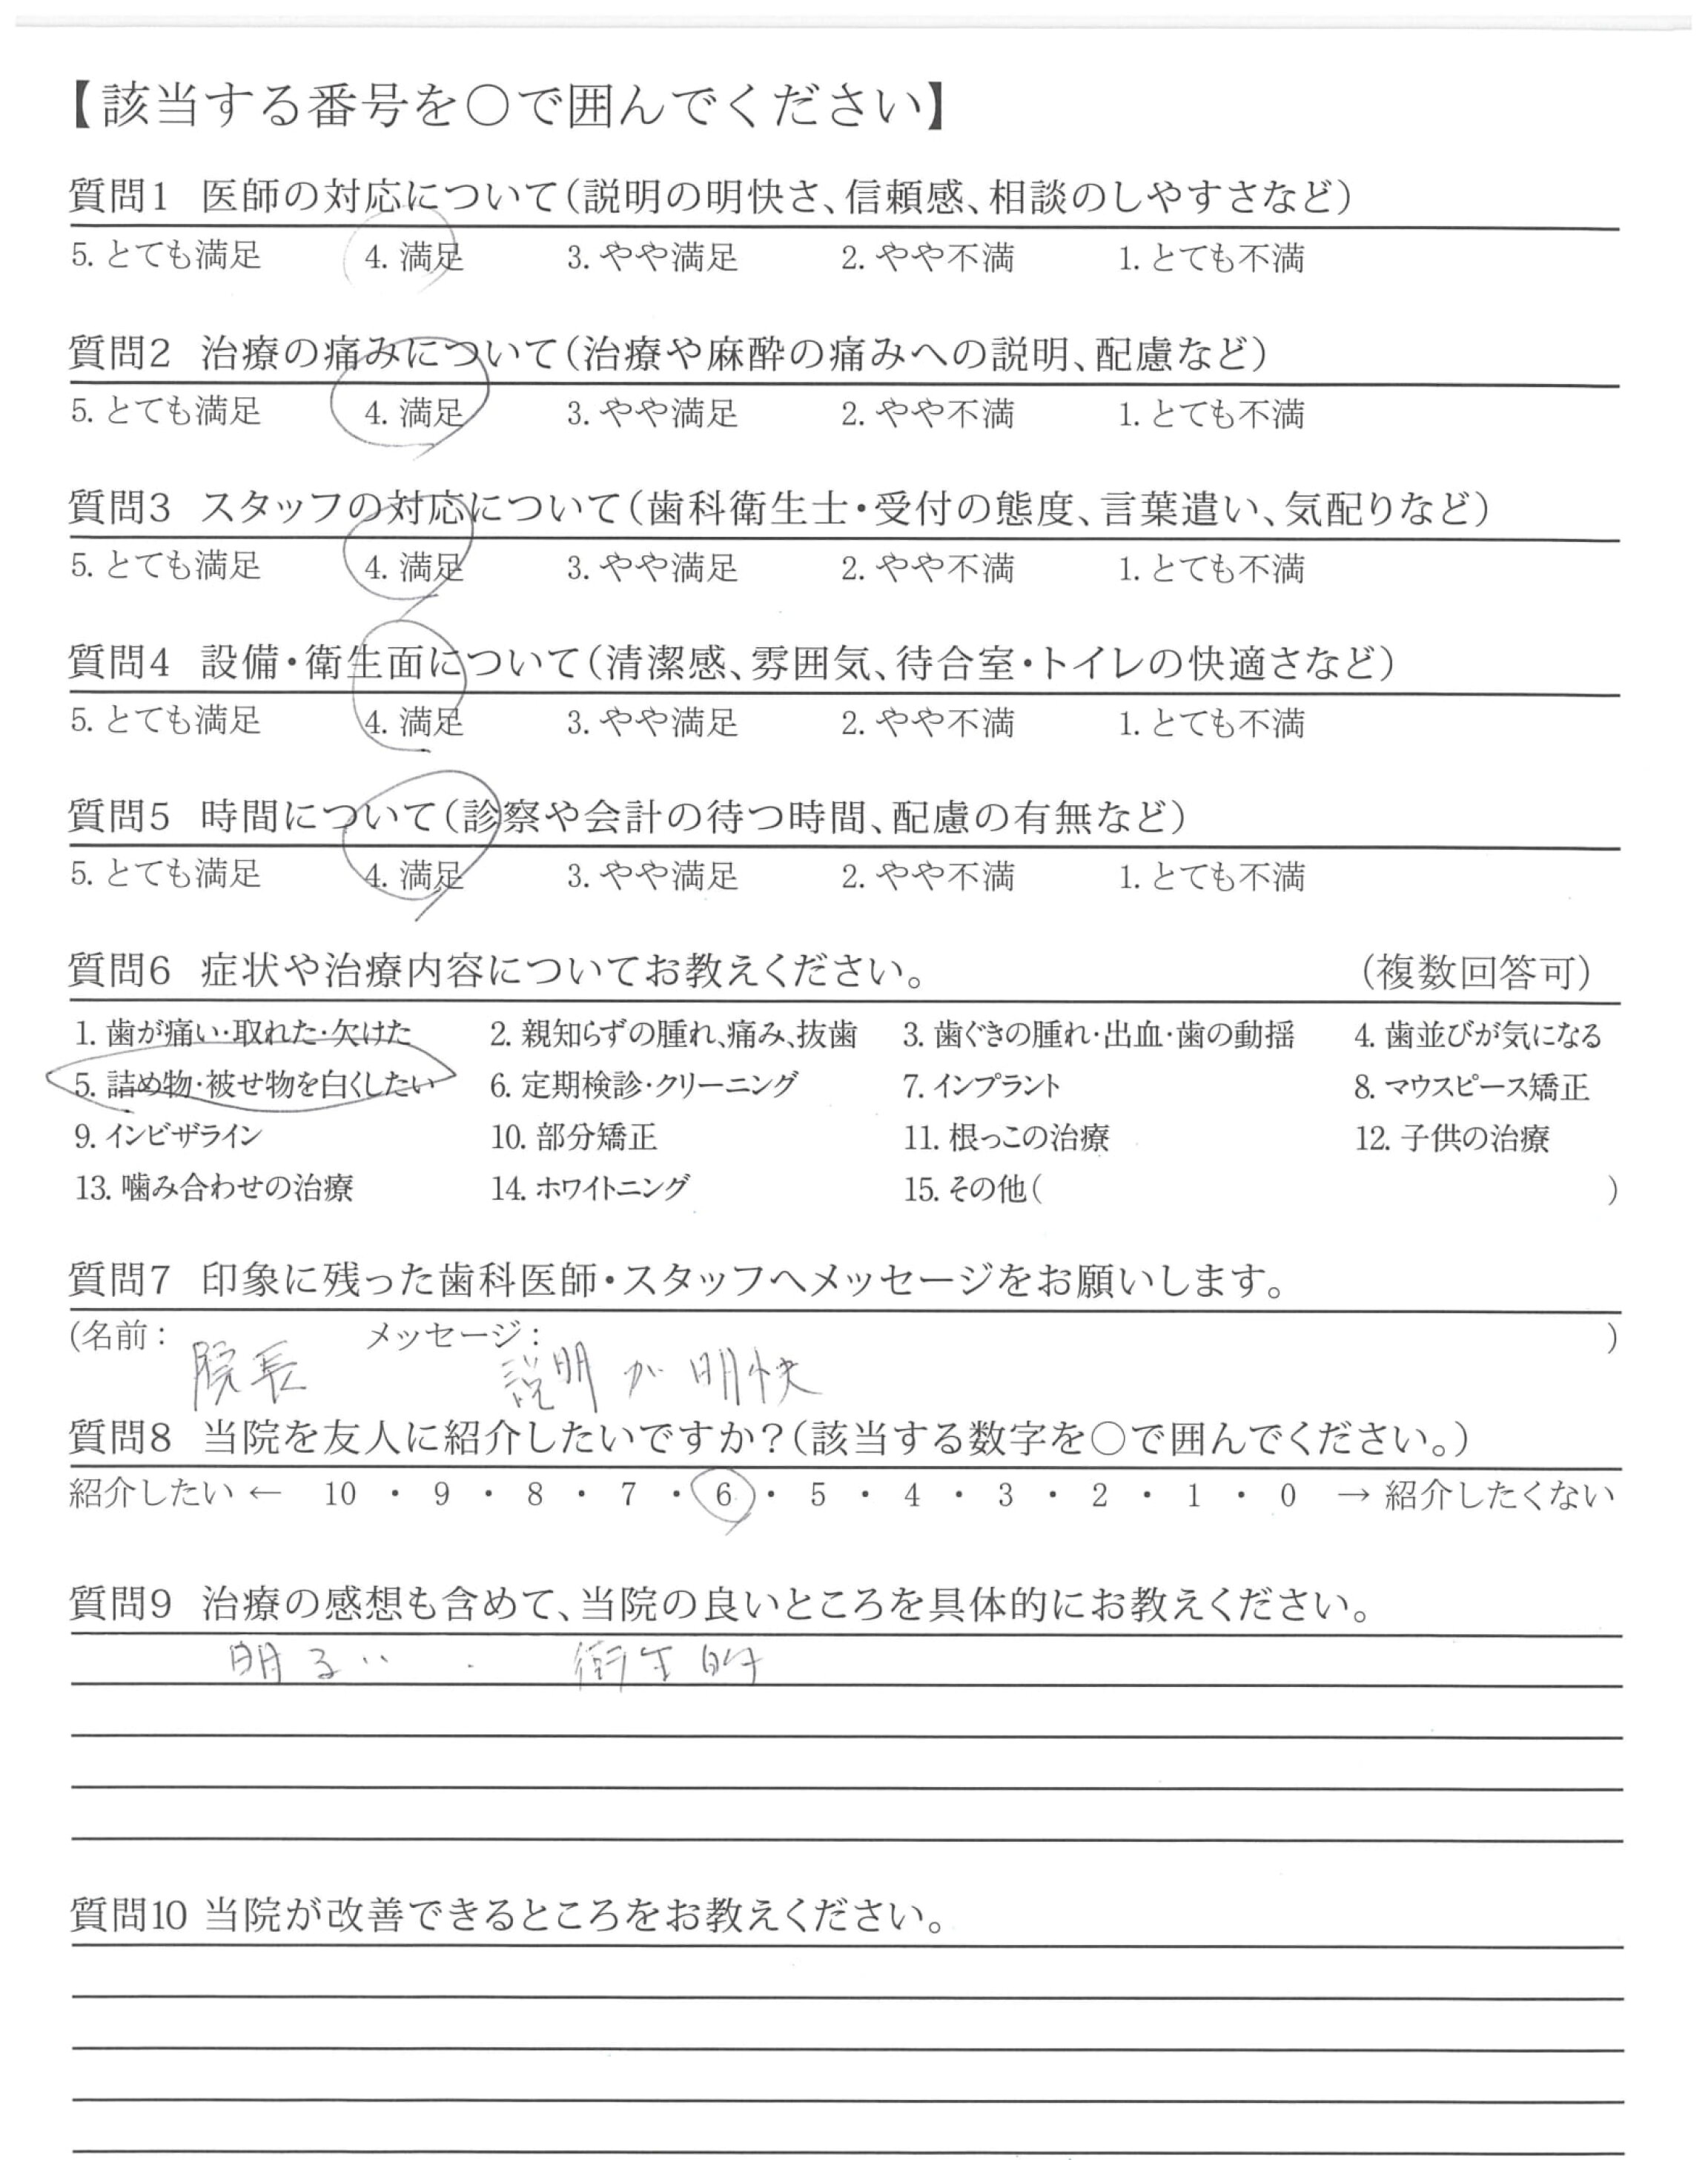 【該当する番号を○で囲んでください】
質問1 医師の対応について(説明の明快さ、信頼感、相談のしやすさなど)
5. とても満足 4. 満足 3. やや満足 2. やや不満 1. とても不満
質問2 治療の痛みについて(治療や麻酔の痛みへの説明、配慮など)
5. とても満足 4. 満足 3. やや満足 2. やや不満 1. とても不満
質問3 スタッフの対応について(歯科衛生士・受付の態度、言葉遣い、気配りなど)
5. とても満足 4. 満足 3. やや満足 2. やや不満 1. とても不満
質問4 設備・衛生面について(清潔感、雰囲気、待合室・トイレの快適さなど)
5. とても満足 4. 満足 3. やや満足 2. やや不満 1. とても不満
質問5 時間について(診察や会計の待つ時間、配慮の有無など)
5. とても満足 4. 満足 3. やや満足 2. やや不満 1. とても不満
質問6 症状や治療内容についてお教えください。 (複数回答可)
1. 歯が痛い・取れた・欠けた 2. 親知らずの腫れ、痛み、抜歯 3. 歯ぐきの腫れ・出血・歯の動揺 4. 歯並びが気になる
5. 詰め物・被せ物を白くしたい 6. 定期検診・クリーニング 7. インプラント 8. マウスピース矯正
9. インビザライン 10. 部分矯正 11. 根っこの治療 12. 子供の治療
13. 噛み合わせの治療 14. ホワイトニング 15. その他( )
質問7 印象に残った歯科医師・スタッフへメッセージをお願いします。
(名前: メッセージ: )
院長 説明が明快
質問8 当院を友人に紹介したいですか?(該当する数字を○で囲んでください。)
紹介したい ← 10 ・ 9 ・ 8 ・ 7 ・ 6 ・ 5 ・ 4 ・ 3 ・ 2 ・ 1 ・ 0 → 紹介したくない
質問9 治療の感想も含めて、当院の良いところを具体的にお教えください。
明るい . 衛生的
質問10 当院が改善できるところをお教えください。